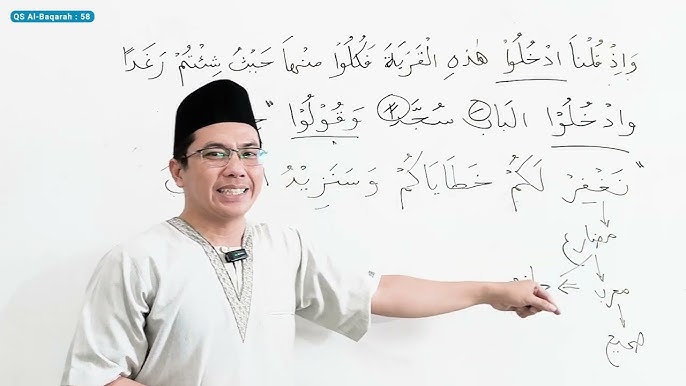 QS Al-Baqarah : 58
وَإِذْ قُلْنَا ادْخُلُوْا هٰذِهِ الْقَرْيَةَ فَكُلُوْا مِنْهَا حَيْثُ شِئْتُمْ رَغَدًا
وَادْخُلُوْا الْبَابَ سُجَّدًا وَقُوْلُوْا
نَغْفِرْ لَكُمْ خَطَايَاكُمْ وَسَنَزِيْدُ
مضارع
معرب
صحيح